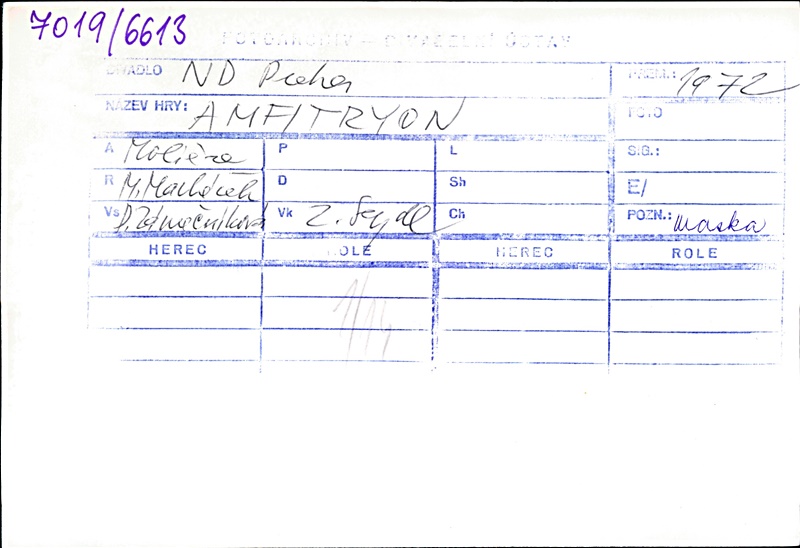 7019/6613
DIVADLO ND Praha PREM.: 1972
NÁZEV HRY: AMFITRYON FOTO
A Molière P L SIG.:
R M. Macháček D Sh E/
Vs D. Zámečníková Vk Z. Seydl Ch POZN.: maska
HEREC ROLE HEREC ROLE
1/14